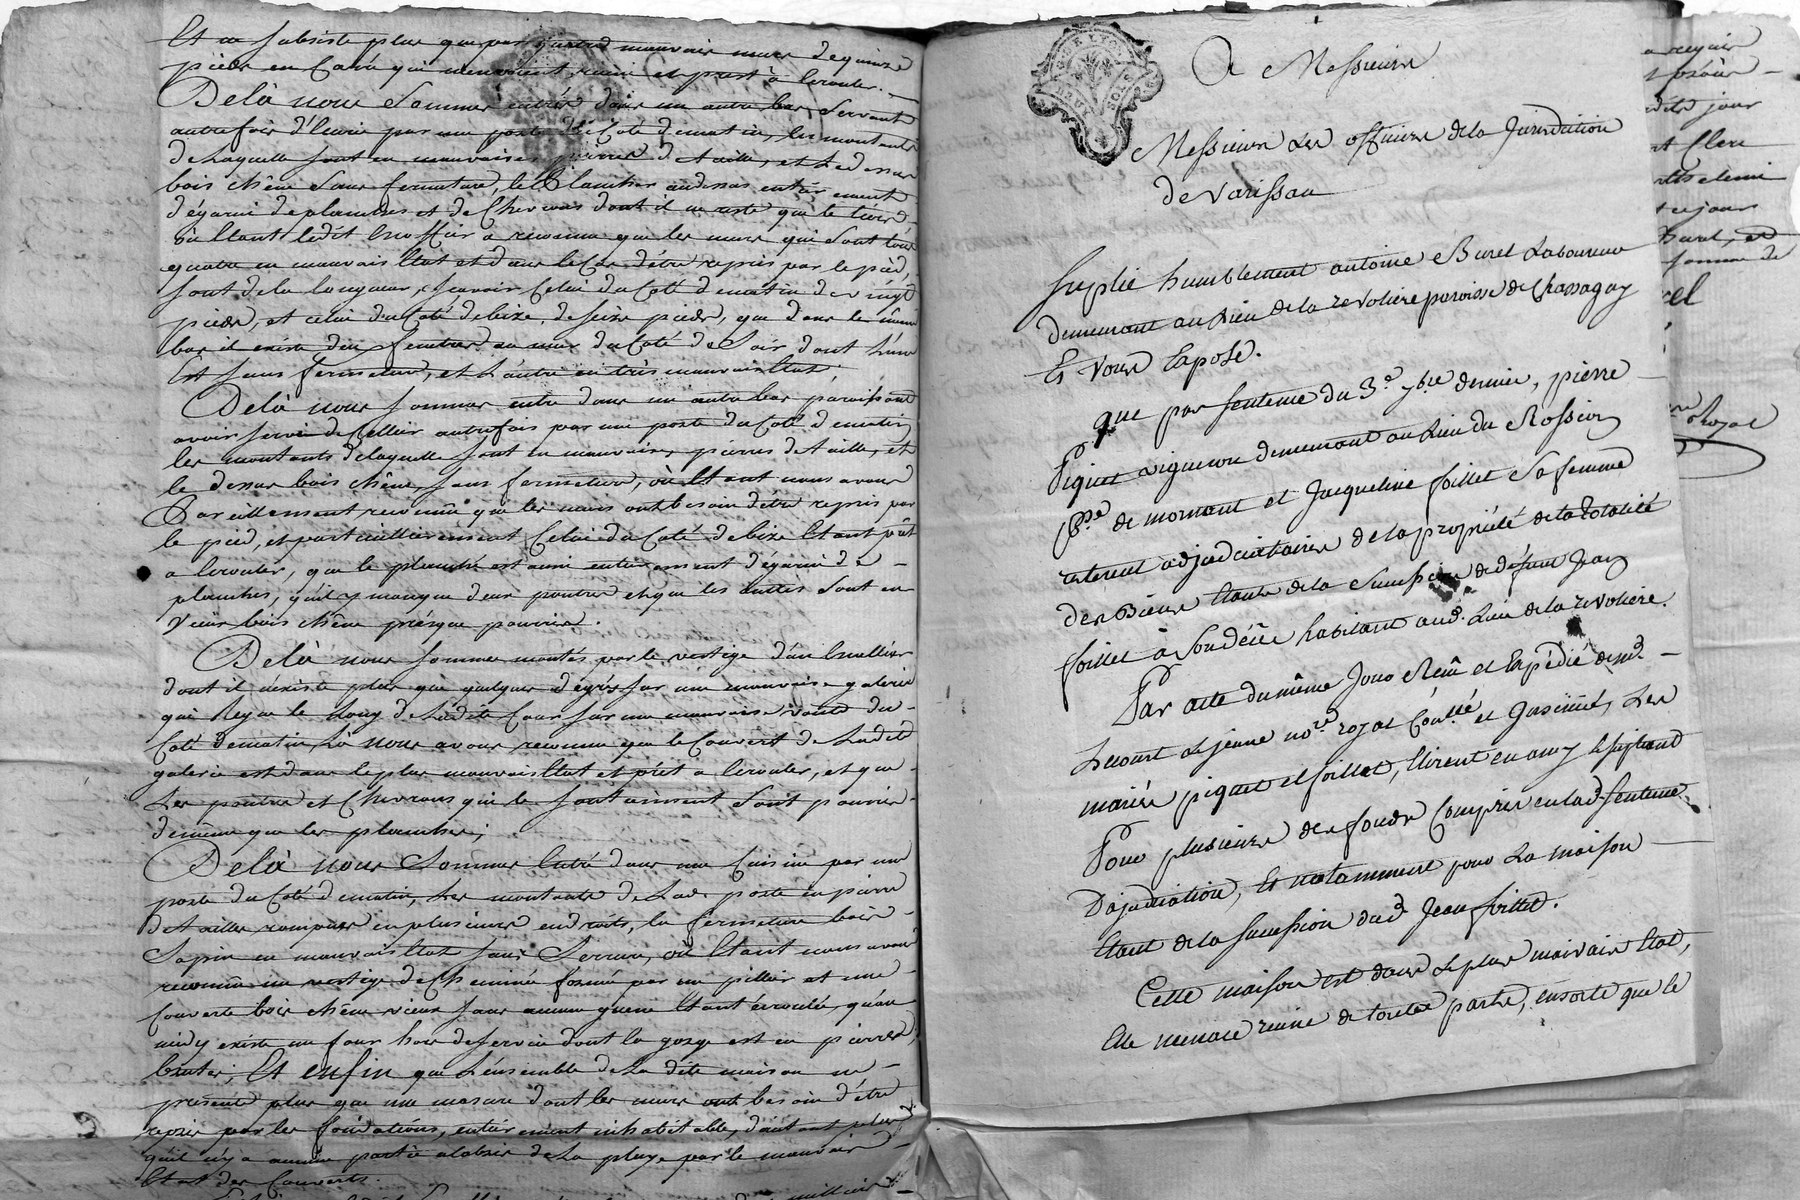 Et ne subsiste plus que par quatre mauvais murs de quinze
pieds en carré qui menacent ruine et prest à crouler.
Delà nous sommes entrés dans un autre bas servant
autrefois d'écurie par une porte du Coté de matin, les montants
de laquelle sont en mauvaises pierres de taille, et le dessus
bois chêne sans fermeture, le plancher au dessus entièrement
dégarni de planches et de Chevrons dont il ne reste que le tiers
où Etant ledit a reconnu que les murs qui sont tous
quatre en mauvais Etat et dans le Cas d'être repris par le pied,
sont de la longueur, scavoir Celui du Coté de matin de vingt
pieds, et celui du Coté de bize de seize pieds, que dans le même
bas il existe deux fenêtres au mur du Coté de Soir dont l'une
Est sans fermeture, et l'autre en très mauvais Etat
Delà nous sommes entré dans un autre bas paroissant
avoir servi de Cellier autrefois par une porte du Coté de matin
les montants de laquelle sont en mauvaises pierres de taille, et
le dessus bois chêne, sans fermeture, où Etant nous avons
Pareillement reconnu que les murs ont besoin d'être repris par
le pied, et particullierement Celui du Coté de bize Etant prêt
a Crouler, que le planché est aussi entierement dégarni de
planches, qu'il y manque deux poutres et que les autres sont en
vieux bois chêne presque pourries.
Delà nous sommes montés par le vestige d'un Escallier
dont il n'existe plus que quelques degrés sur une mauvaise galerie
qui Regne le Long de Ladite Cour sur une mauvaise voute du
Coté de matin, Là nous avons reconnu que le Couvert de Ladite
galerie est dans le plus mauvais Etat et prêt a Crouler, et que
Les poutres et Chevrons qui le soutiennent sont pourris
de même que les planches;
Delà nous Sommes Entré dans une Cuisine par une
porte du Coté de matin, Les montants de Lad. porte en pierre
de tailles rompues en plusieurs endroits, la fermeture bois
Sapin en mauvais Etat sans Serrure, où Etant nous avons
reconnu un vestige de Cheminée formée par un pillier et une
Couverte bois chêne vieux sans aucune Etant écroulé, qu'au
midy existe un four hors de service dont la gorge est en pierres
brutes; Et enfin que L'ensemble de La dite maison ne
présente plus que une masure dont les murs ont besoin d'être
repris par les fondations, entierement inhabitable, d'autant plus
qu'il n'y a aucune partie a labrie de La pluye par le mauvais
Etat des Couverts.
A Messieurs
Messieurs Les officiers de la Jurisdiction
de Varissan
Suplie humblement antoine Burel Laboureur
demeurant au Lieu de la revoliere paroisse de Chassagny
Et Vous Expose.
que par sentence du 3.e 7bre dernier, pierre
Piquet vigneron demeurant au Lieu du Rossion
P.sse de mornant et Jacqueline foillet Sa femme
restèrent adjudicataires de la propriété de la totalité
des Biens Etants de la Succession de défunt Jean
foillet à Son décès habitant aud. Lieu de la revoliere.
Par acte du même Jour Reçu et Expédié
Lecourt Le jeune no.re royal Contlé et Insinué, Les
mariés piquet et foillet, Elirent en amy Le supliant
Pour plusieurs des fonds Compris en lad. sentence
D'ajudication, Et notamment pour La maison
Etant de la succession dud. Jean foillet.
Cette maison est dans Le plus mauvais Etat,
Elle menace ruine de toutes parts, ensorte que le